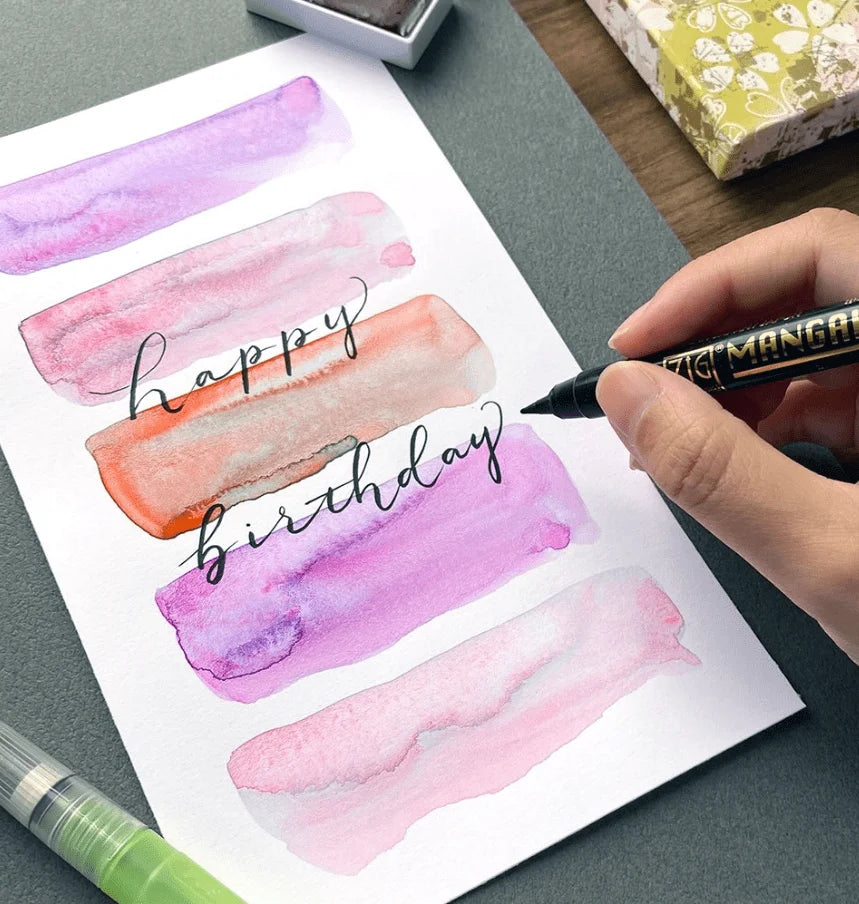 happy
birthday
ZIG® MANGA